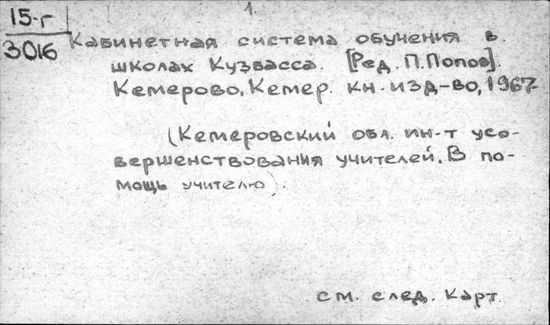 1.
15-г
3016
Кабинетная система обучения в
школах Кузбасса. [Ред. П. Попов].
Кемерово, Кемер. кн. изд-во, 1967
(Кемеровский обл. ин-т усо-
вершенствования учителей. В по-
мощь учителю).
см. след. карт.